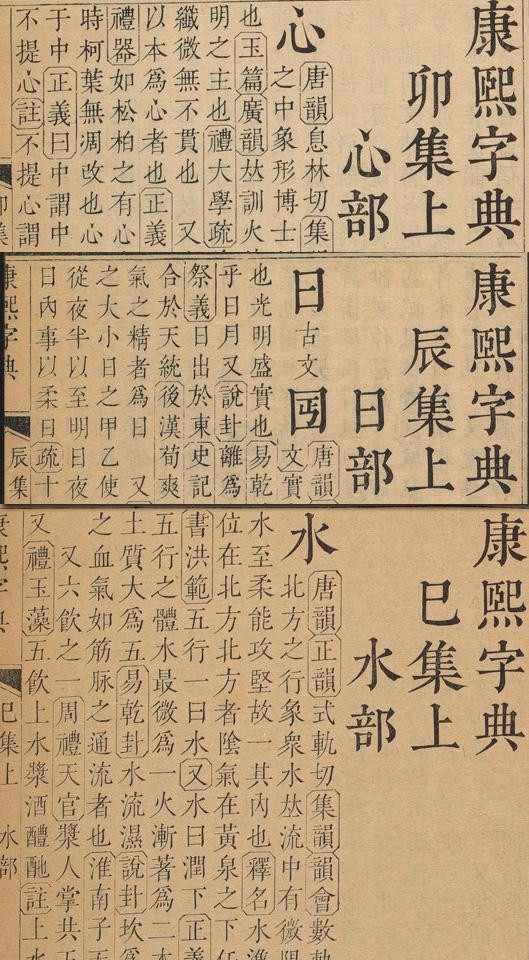 康熙字典
卯集上
心部
心
唐韻息林切集
之中象形博士
也玉篇廣韻𠀤訓火
明之主也禮大學疏
纖微無不貫也 又
以本爲心者也正義
禮器如松柏之有心
時柯葉無凋改也心
于中正義曰中謂中
不提心註不提心謂
康熙字典
辰集上
日部
日
古文
囸
唐韻
文實
也光明盛實也易乾
乎日月又說卦離爲
祭義日出於東史記
合於天統後漢荀爽
氣之精者爲日 又
之大小日之甲乙使
從夜半以至明日夜
日內事以柔日疏十
康熙字典
辰集
康熙字典
巳集上
水部
水
唐韻正韻式軌切集韻韻會數軌
北方之行象衆水𠀤流中有微陽
水至柔能攻堅故一其內也釋名水準
位在北方北方者陰氣在黃泉之下任
書洪範五行一曰水又水曰潤下正義
五行之體水最微爲一火漸著爲二木
土質大爲五易乾卦水流濕說卦坎爲
之血氣如筋脉之通流者也淮南子天
又六飲之一周禮天官漿人掌共王
又禮玉藻五飮上水漿酒醴酏註上水
巳集上 水部